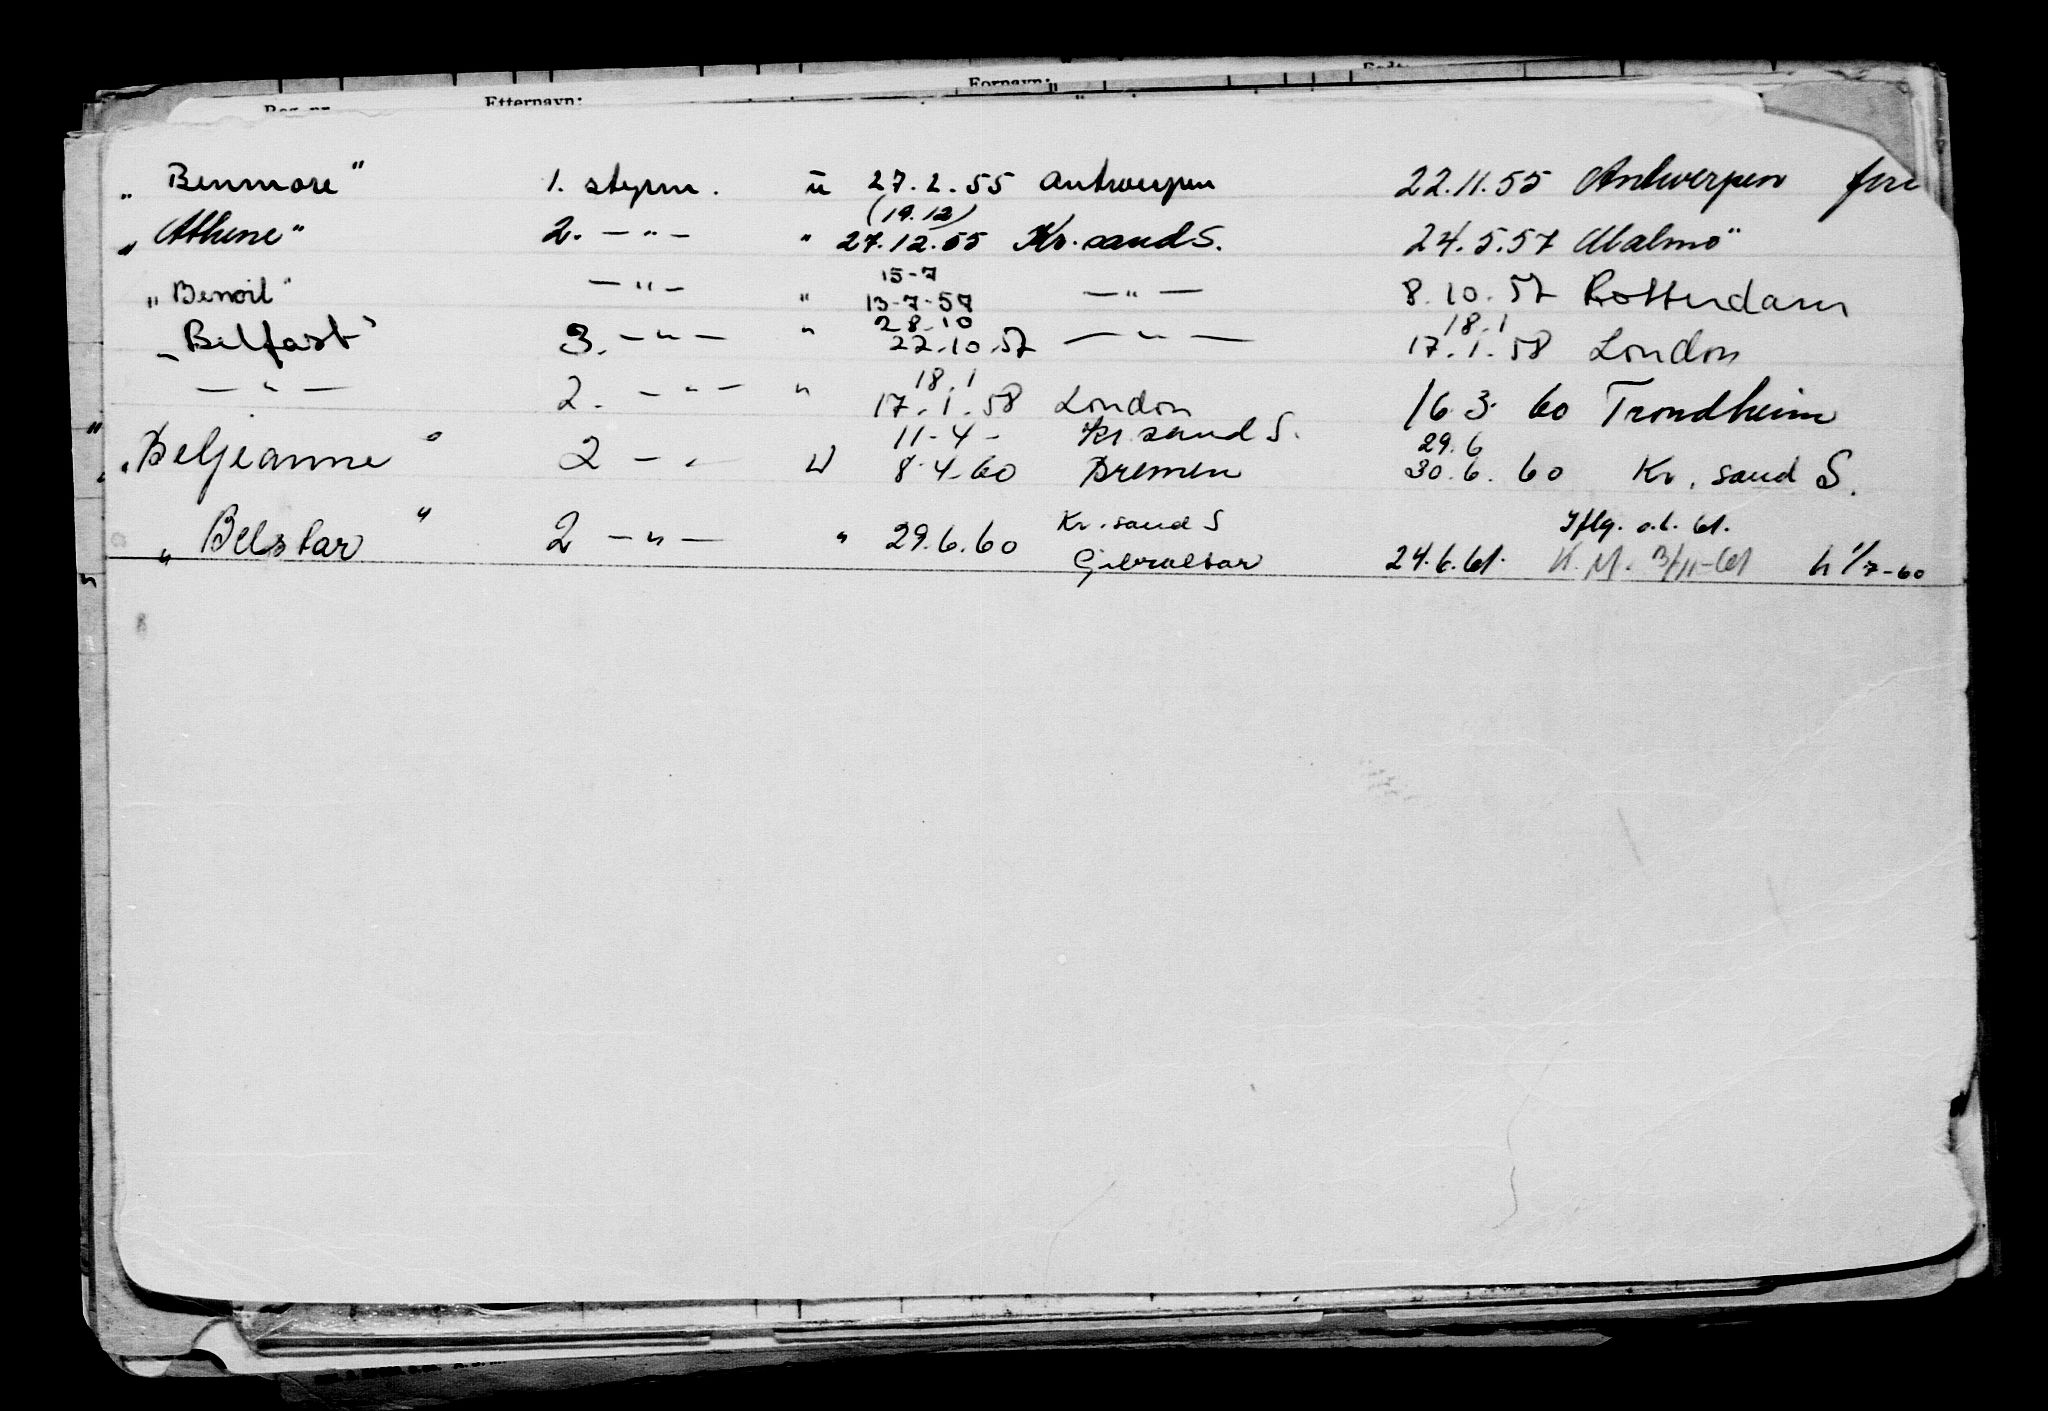 Etternavn: Fornavn:
„ Benmore " 1. styrm. u 27.2.55 Antwerpen 22.11.55 Antwerpen
(19.12)
„ Athene " 2. — " — " 27.12.55 Kr.sand S. 24.5.57 Malmö
15-7
„ Benoil " — " — " 13-7-57 — " — 8.10.57 Rotterdam
28.10 18.1
„ Belfast " 3. — " — " 22.10.57 — " — 17.1.58 London
18.1
— " — 2. — " — " 17.1.58 London 16.3.60 Trondheim
11-4- Kr.sand S. 29.6
„ Beljeanne " 2 — " 8.4.60 Bremen 30.6.60 Kr.sand S.
Kr.sand S Iflg. o.l. 61.
„ Belstar " 2 — " — " 29.6.60 Gibraltar 24.6.61. K.M. 3/11-61 h 1/7-60